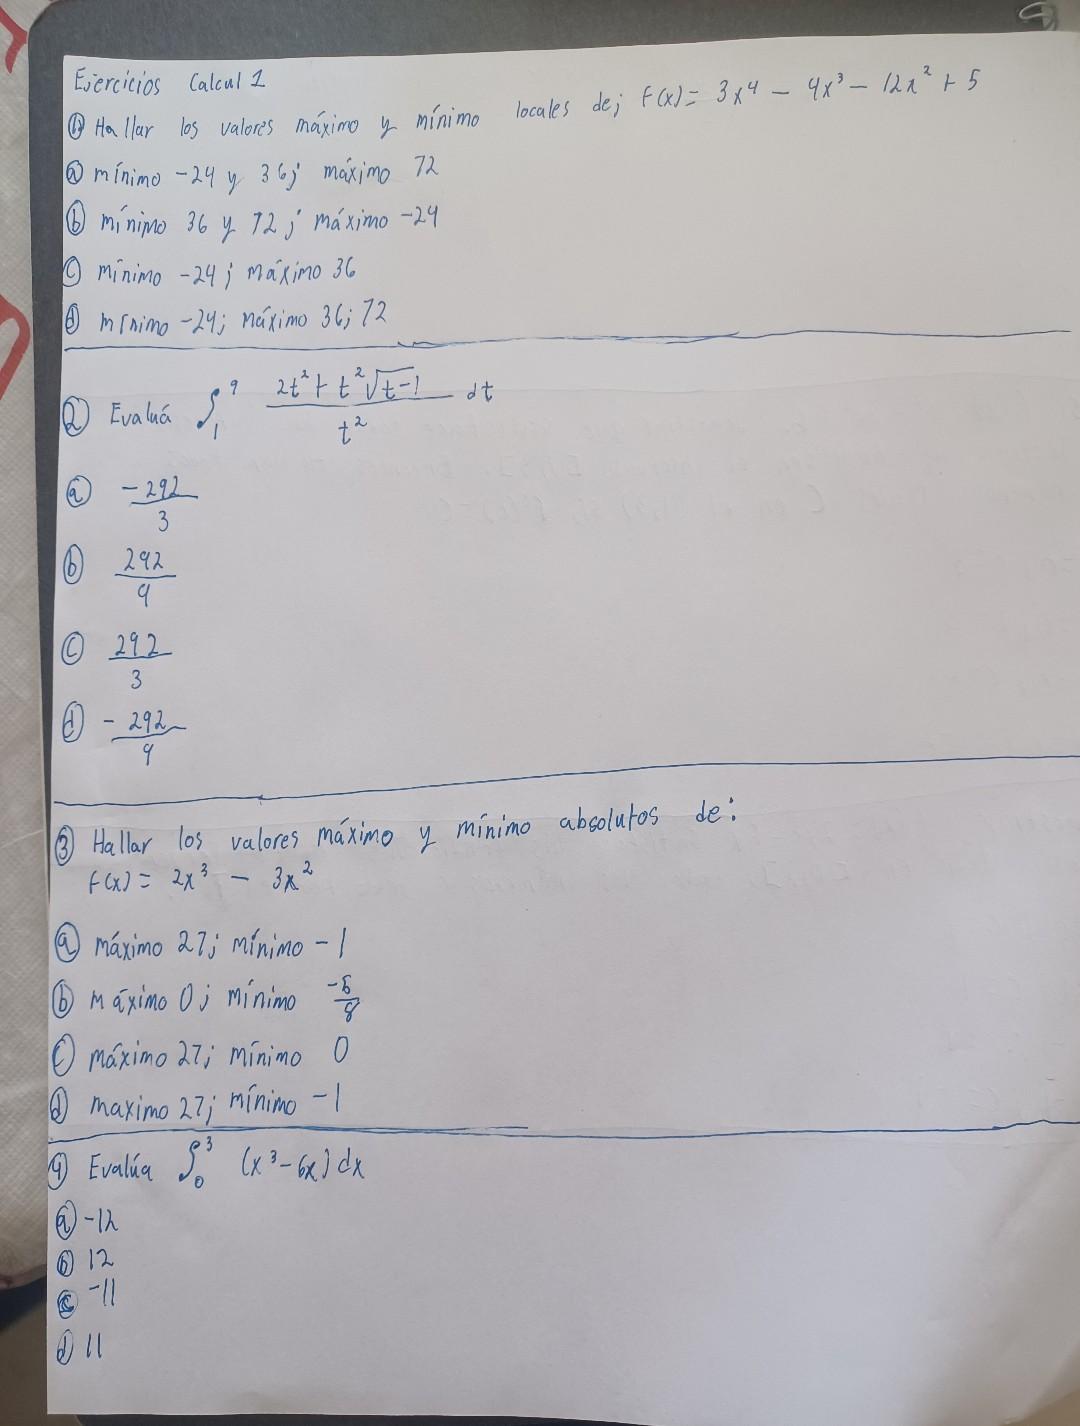 Ejercicios Calcul 1
① Hallar los valores máximo y mínimo locales de; f(x) = 3x⁴ - 4x³ - 12x² + 5
ⓐ mínimo -24 y 36; máximo 72
ⓑ mínimo 36 y 72; máximo -24
ⓒ mínimo -24; máximo 36
ⓓ mínimo -24; máximo 36; 72
② Evaluá ∫₁⁹ (2t² + t²√(t-1))/t² dt
ⓐ -292/3
ⓑ 292/9
ⓒ 292/3
ⓓ -292/9
③ Hallar los valores máximo y mínimo absolutos de:
f(x) = 2x³ - 3x²
ⓐ máximo 27; mínimo -1
ⓑ máximo 0; mínimo -5/8
ⓒ máximo 27; mínimo 0
ⓓ maximo 27; mínimo -1
④ Evalúa ∫₀³ (x³ - 6x) dx
ⓐ -12
ⓑ 12
ⓒ -11
ⓓ 11